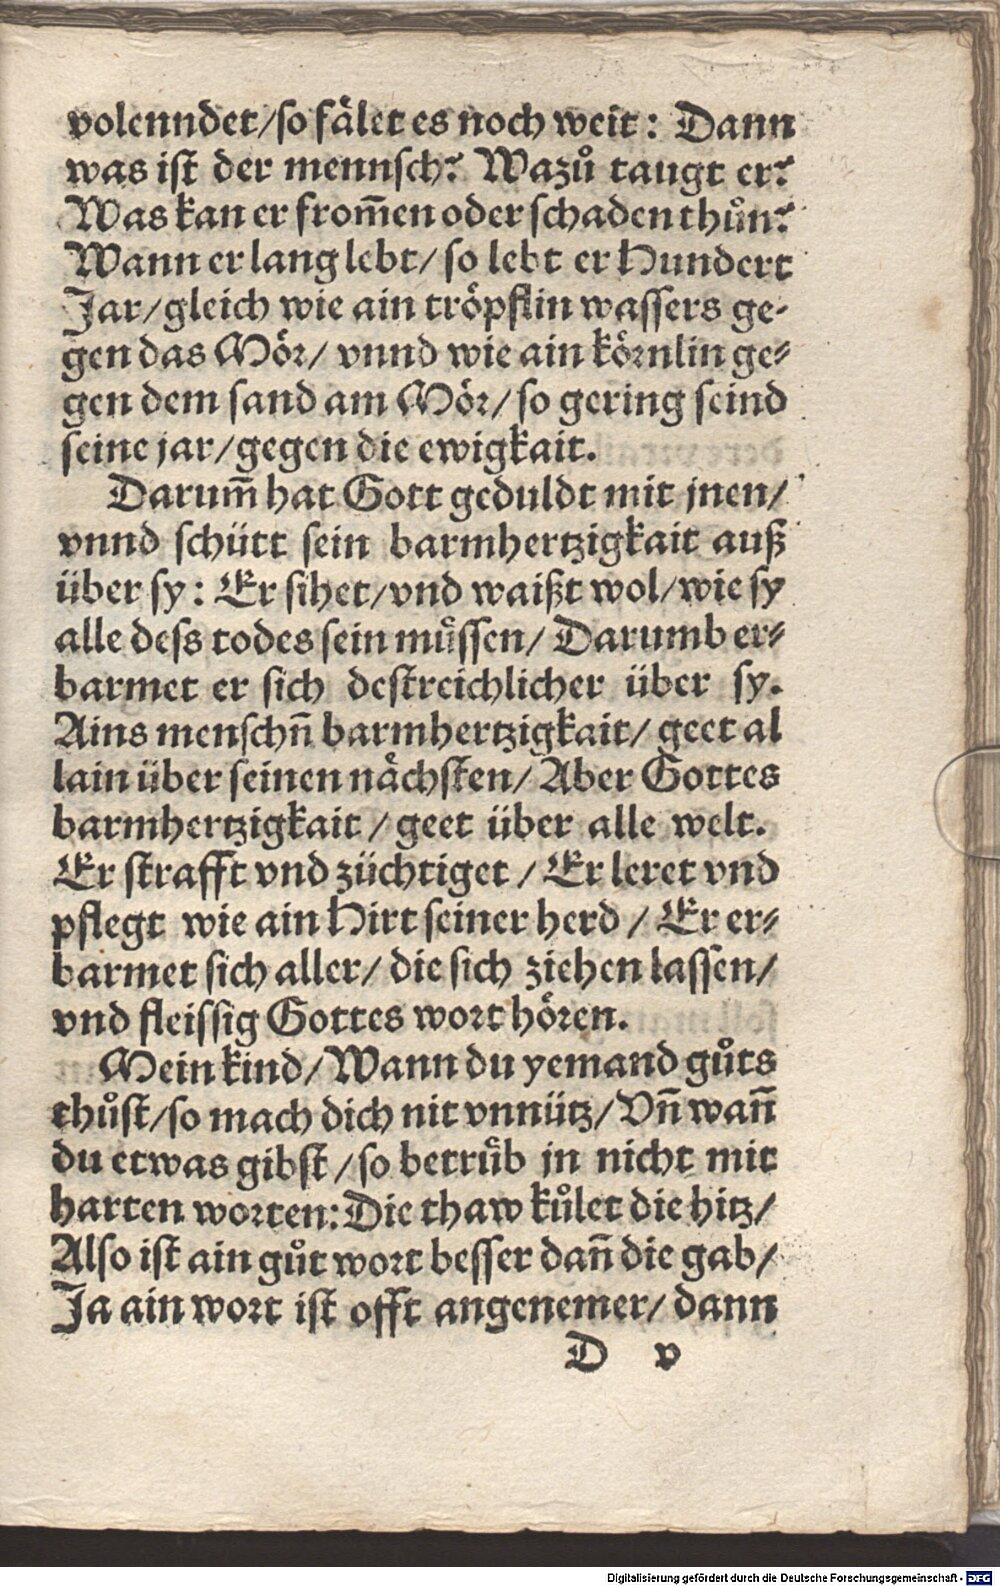 volenndet/so fälet es noch weit: Dann
was ist der mennsch? Wazů taugt er?
Was kan er from̃en oder schaden thůn?
Wann er lang lebt/ so lebt er Hundert
Jar/gleich wie ain tröpflin wassers ge-
gen das Mör/ vnnd wie ain körnlin ge-
gen dem sand am Mör/ so gering seind
seine jar/gegen die ewigkait.
Darum̃ hat Gott geduldt mit jnen/
vnnd schütt sein barmhertzigkait auß
über sy: Er sihet/vnd waißt wol/wie sy
alle dess todes sein müssen/ Darumb er-
barmet er sich destreichlicher über sy.
Ains menschñ barmhertzigkait/ geet al
lain über seinen nächsten/ Aber Gottes
barmhertzigkait / geet über alle welt.
Er strafft vnd züchtiget / Er leret vnd
pflegt wie ain Hirt seiner herd / Er er-
barmet sich aller/ die sich ziehen lassen/
vnd fleissig Gottes wort hören.
Mein kind/ Wann du yemand gůts
thůst/so mach dich nit vnnütz/ Vñ wañ
du etwas gibst / so betrüb jn nicht mit
harten worten: Die thaw kůlet die hitz/
Also ist ain gůt wort besser dañ die gab/
Ja ain wort ist offt angenemer/ dann
D v
Digitalisierung gefördert durch die Deutsche Forschungsgemeinschaft - DFG